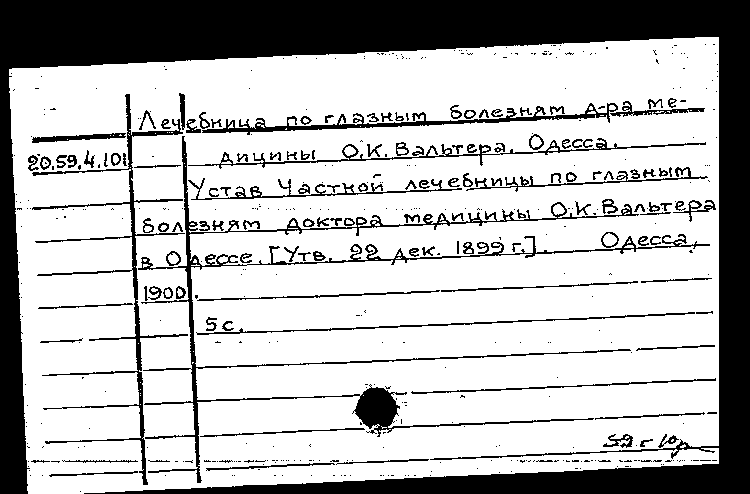 Лечебница по глазным болезням д-ра ме-
20.59.4.101 дицины О.К.Вальтера. Одесса.
Устав Частной лечебницы по глазным
болезням доктора медицины О.К.Вальтера
в Одессе. [Утв. 22 дек. 1899 г.]. Одесса,
1900.
5 с.